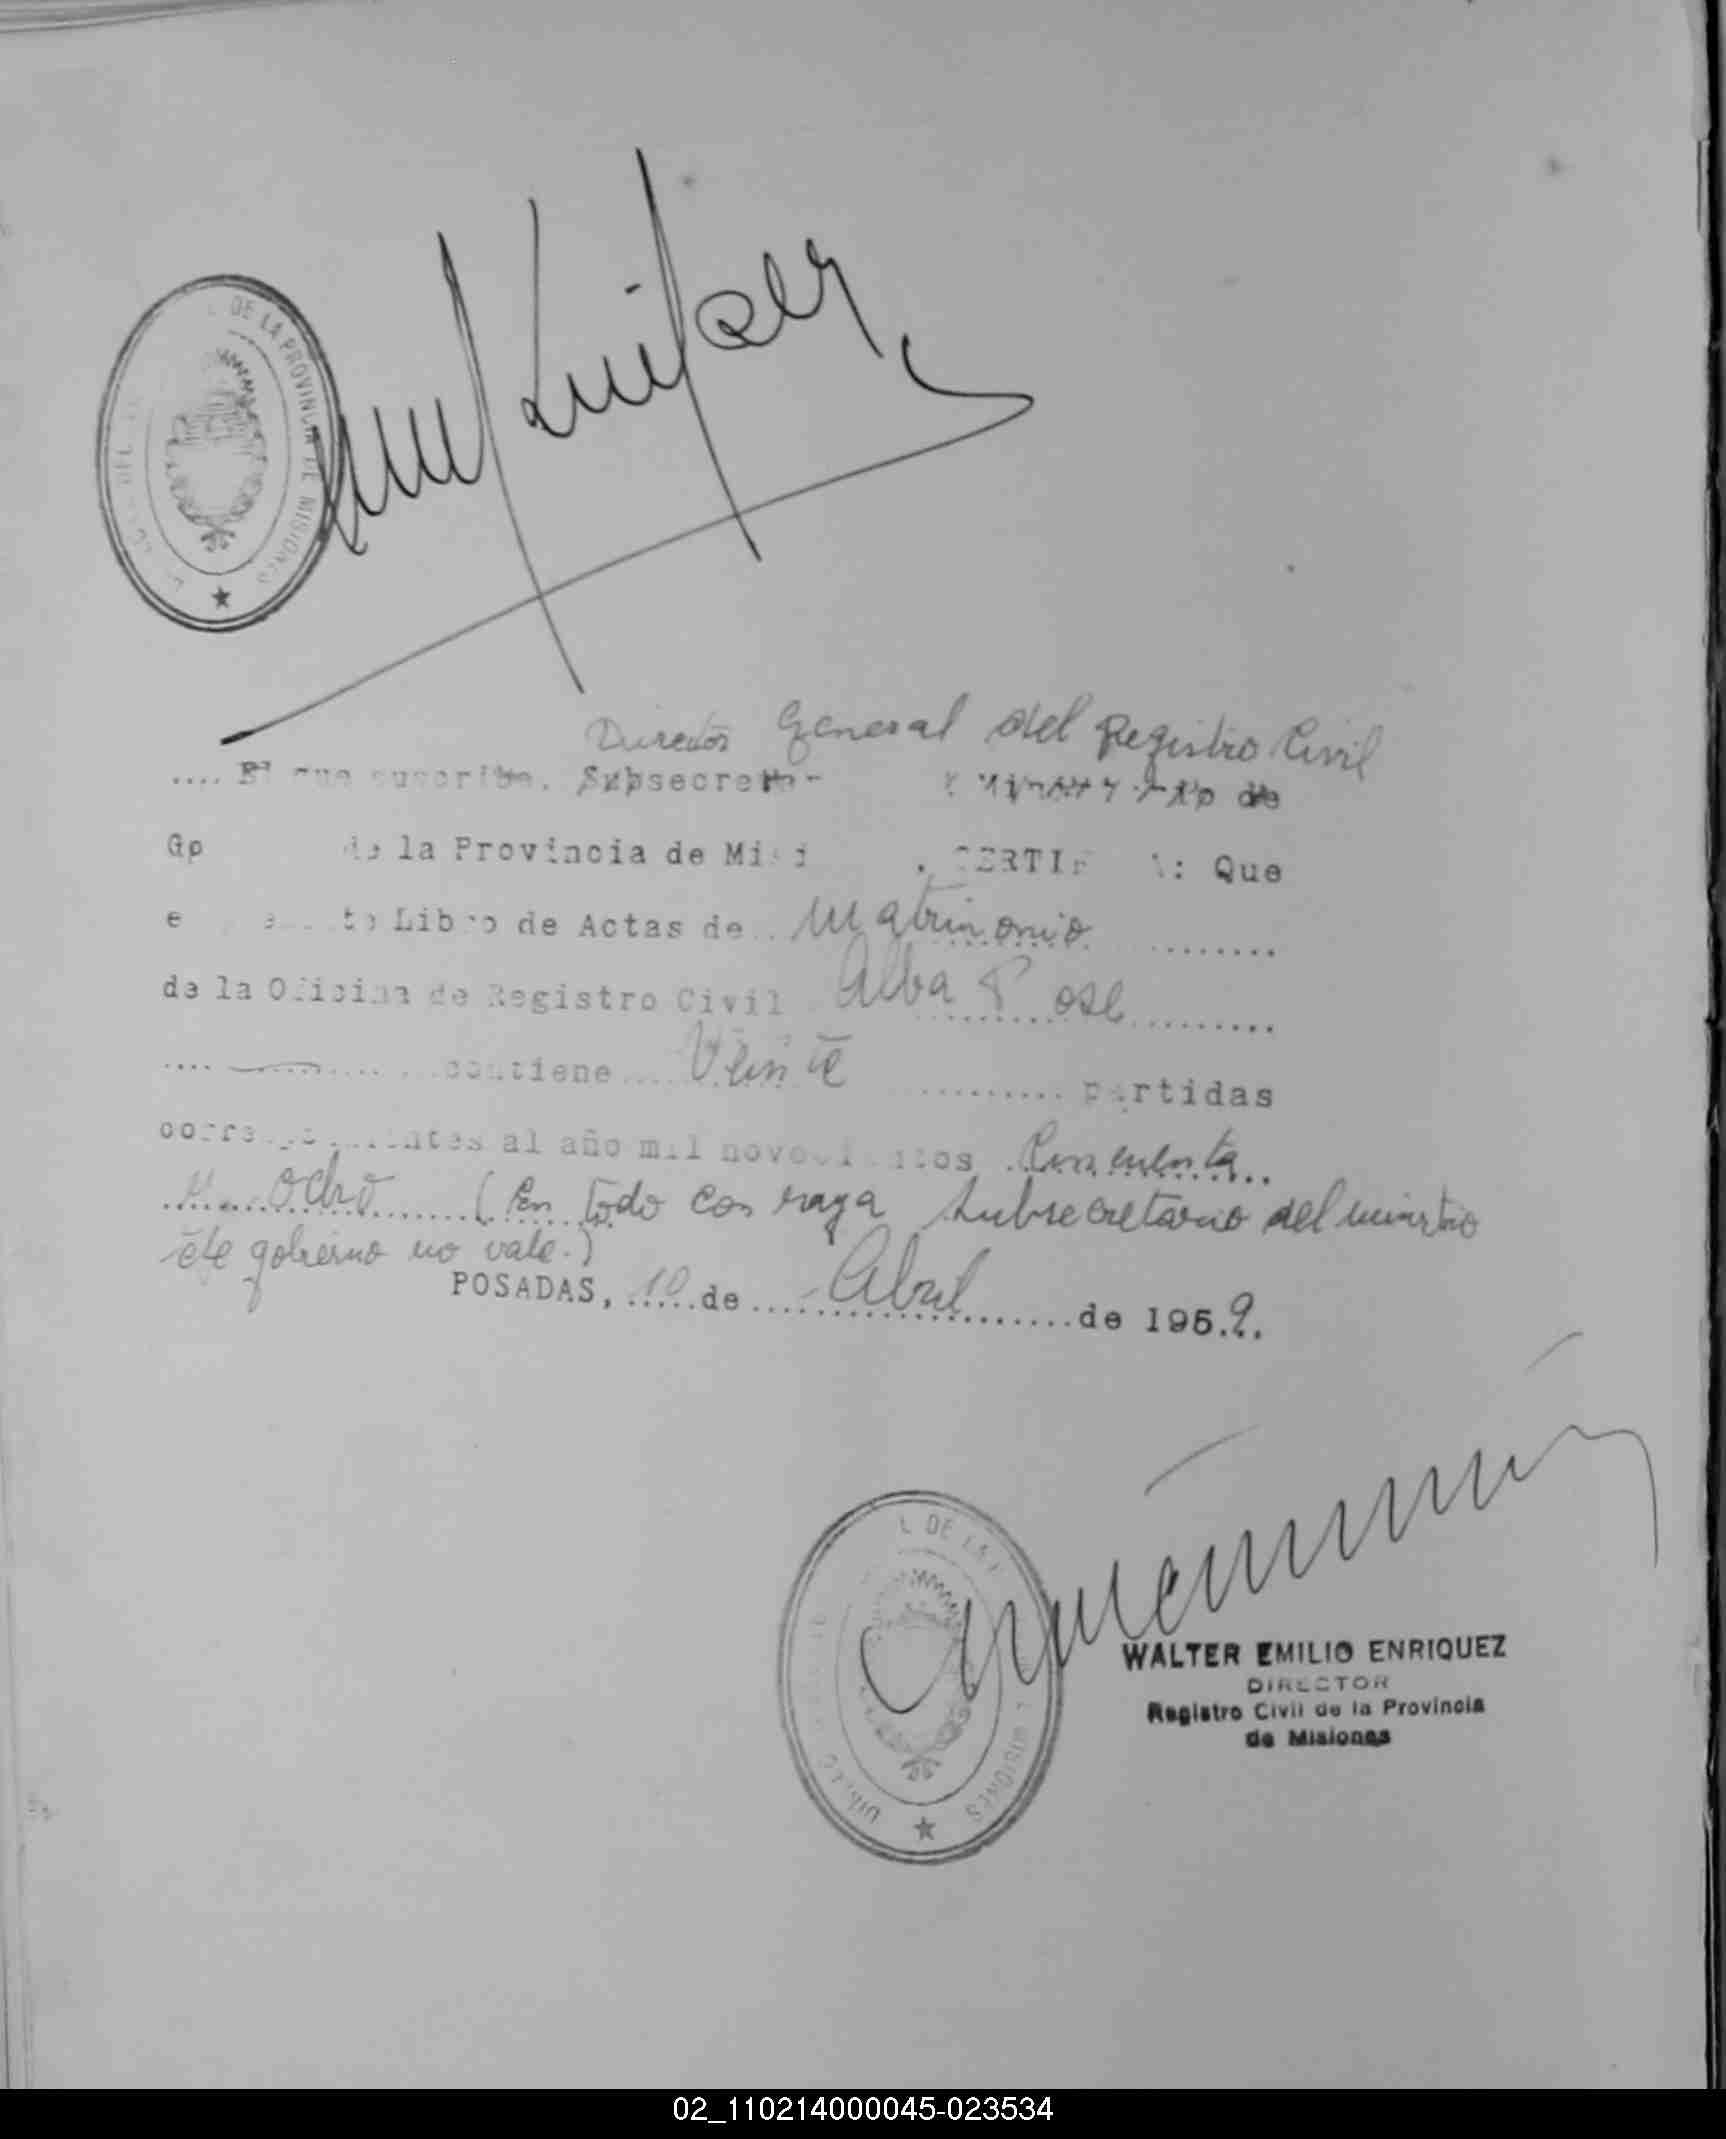 DE LA PROVINCIA DE MISIONES
Director General del Registro Civil
.... El que suscribe, Subsecreta de
Go de la Provincia de Misi . CERTIF A: Que
e te Libro de Actas de.. Matrimonio ........
de la Oficina de Registro Civil Alba Pose .........
.... contiene.... Veinte .......... partidas
corre ntes al año mil nove i ntos .Cincuenta..
y ocho (En todo con raya subsecretario del
de gobierno no vale.)
POSADAS, 10 de Abril de 195.9.
L DE LA MISIONES
WALTER EMILIO ENRIQUEZ
DIRECTOR
Registro Civil de la Provincia
de Misiones
02_110214000045-023534